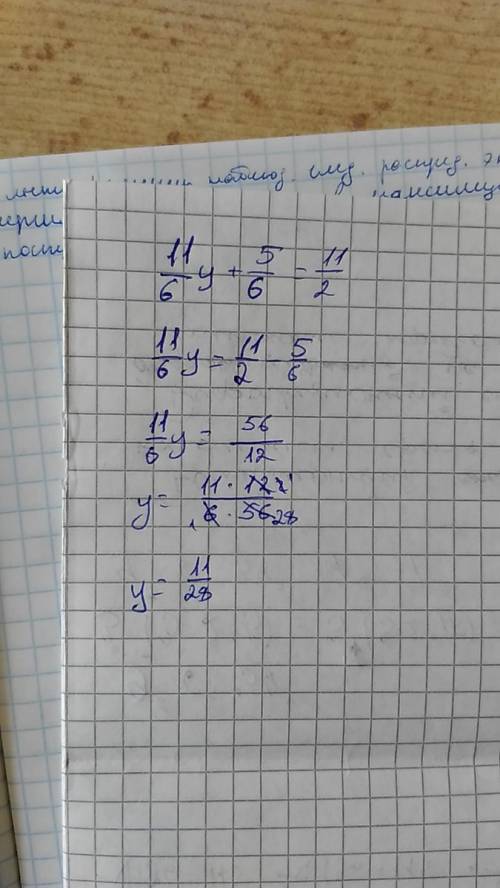 наблюд. след.
11/6 y + 5/6 = 11/2
11/6 y = 11/2 - 5/6
11/6 y = 56/12
y = 11 · 12 2 1 / 1 6 · 56 28
y = 11/28